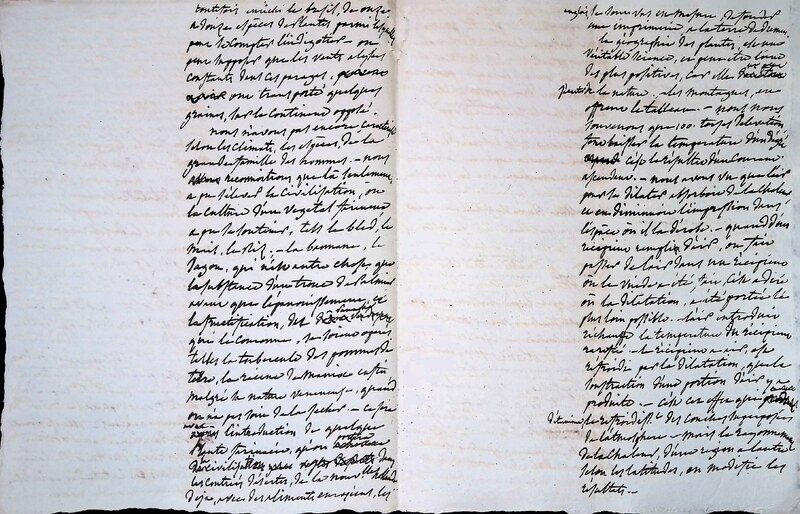 toutefois enrichi le brésil, de onze
a douze espèces de plantes parmi lesquelles
peut se compter l'indigotier - on
peut supposer que les vents alysés
constants dans ces parages,
ont transporté quelques
graines, sur le continent opposé.
nous n'avons pas encore considéré
selon les climats, les espèces, de la
grande famille des hommes. - nous
reconnoitrons que là seulement
a pu s'élever la Civilisation, où
la culture d'un vegetal farineux
a pu la soutenir, tels le bled, le
maïs, le riz. - la banane, le
sagou, qui n'est autre chose que
la substance d'un tronc de Palmier
avant que l'épanouissement, et
la fructification, des
qui le couronne, se soient opérés
telles la tubercule des pommes de
terre, la racine de manioc enfin
malgré sa nature veneneuse, quand
on n'a pas soin de la secher. - ce sera
avec l'introduction de quelque
Plante farineuse, qu'on portera
la civilisation dans
les contrées désertes, de la nouvelle hollande
déja, avec des aliments européens, les
anglais se sont vus en mesure, de fonder
une imprimerie a la terre de diemen
la géographie des plantes, est une
véritable science, et peut-être l'une
des plus positives, car elle
de la nature. - les montagnes, en
offrent le tableau. - nous nous
souvenons que 100. toises d'elevation
font baisser la temperature d'un degré
c'est le résultat d'un Courant
ascendant. - nous avons vu que l'air
pour se dilater absorboit de la chaleur
et en diminuoit l'impression dans
l'espace où il la dérobe. - quand d'un
recipient rempli d'air, on fait
passer de l'air dans un recipient
où le vuide a été fait, c'est a dire
où la dilatation, a été portée le
plus loin possible. - l'air introduit
rechauffe la temperature du recipient
rarefié - le recipient a air, est
refroidi par la dilatation, que la
soustraction d'une portion d'air y a
produite. - c'est cet effet que
détermine le refroidisst. des couches superposées
de l'atmosphere - mais le rayonnement
de la chaleur, d'une region a l'autre
selon les latitudes, en modifie les
résultats. -